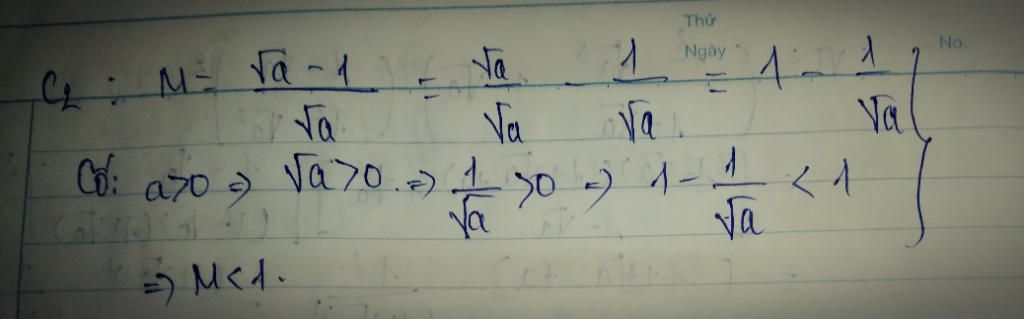 Thứ
Ngày
No.
C₂ : M = (√a - 1)/√a = √a/√a - 1/√a = 1 - 1/√a }
Có: a>0 => √a>0 => 1/√a >0 => 1 - 1/√a < 1
=> M<1.